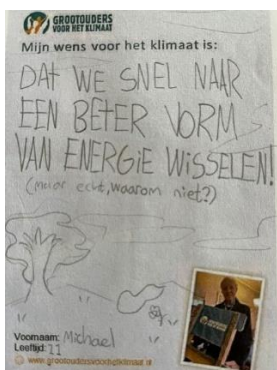 GROOTOUDERS
VOOR HET KLIMAAT
Mijn wens voor het klimaat is:
DAt WE SNEL NAAR
EEN BETER VORM
VAN ENERGiE WiSSELEN!
(maar echt, waarom niet?)
Voornaam: Michael
Leeftijd: 11
www.grootoudersvoorhetklimaat.nl